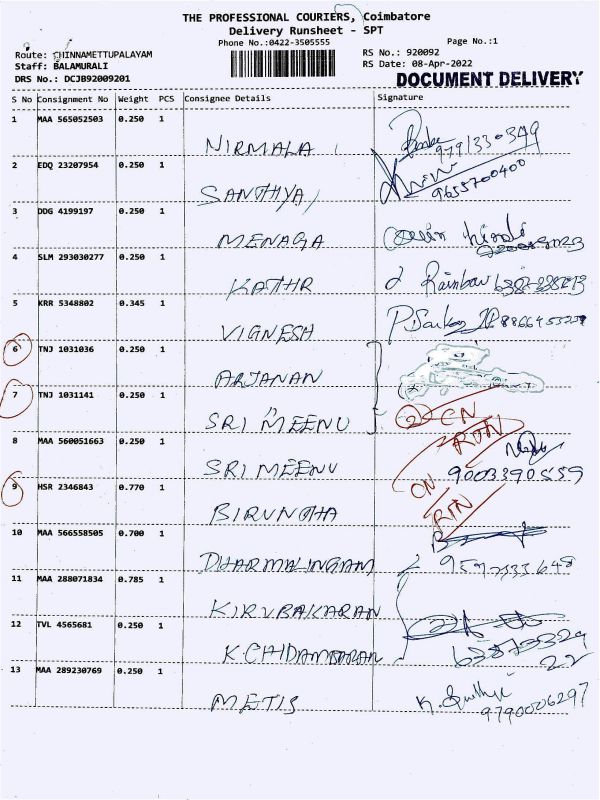 THE PROFESSIONAL COURIERS, Coimbatore
Delivery Runsheet - SPT
Phone No.:0422-3505555 Page No.:1
Route: CHINNAMETTUPALAYAM RS No.: 920092
Staff: BALAMURALI RS Date: 08-Apr-2022
DRS No.: DCJB92009201 DOCUMENT DELIVERY
S No Consignment No Weight PCS Consignee Details Signature
1 MAA 565052503 0.250 1
NIRMALA
2 EDQ 23207954 0.250 1
SANTHIYA 9655700400
3 DDG 4199197 0.250 1
MENAGA
4 SLM 293030277 0.250 1
KATHR Rainbow
5 KRR 5348802 0.345 1
VIGNESH
6 TNJ 1031036 0.250 1
ARJANAN
7 TNJ 1031141 0.250 1
SRI MEENU 2 CN
RTN
8 MAA 560051663 0.250 1
SRI MEENU 9003390559
9 HSR 2346843 0.770 1 CN
BIRUNTHA RTN
10 MAA 566558505 0.700 1
DHARMALINGAM
11 MAA 288071834 0.785 1
KIRUBAKARAN
12 TVL 4565681 0.250 1
K CHIDAMBARAN
22
13 MAA 289230769 0.250 1
METIS 9790006297